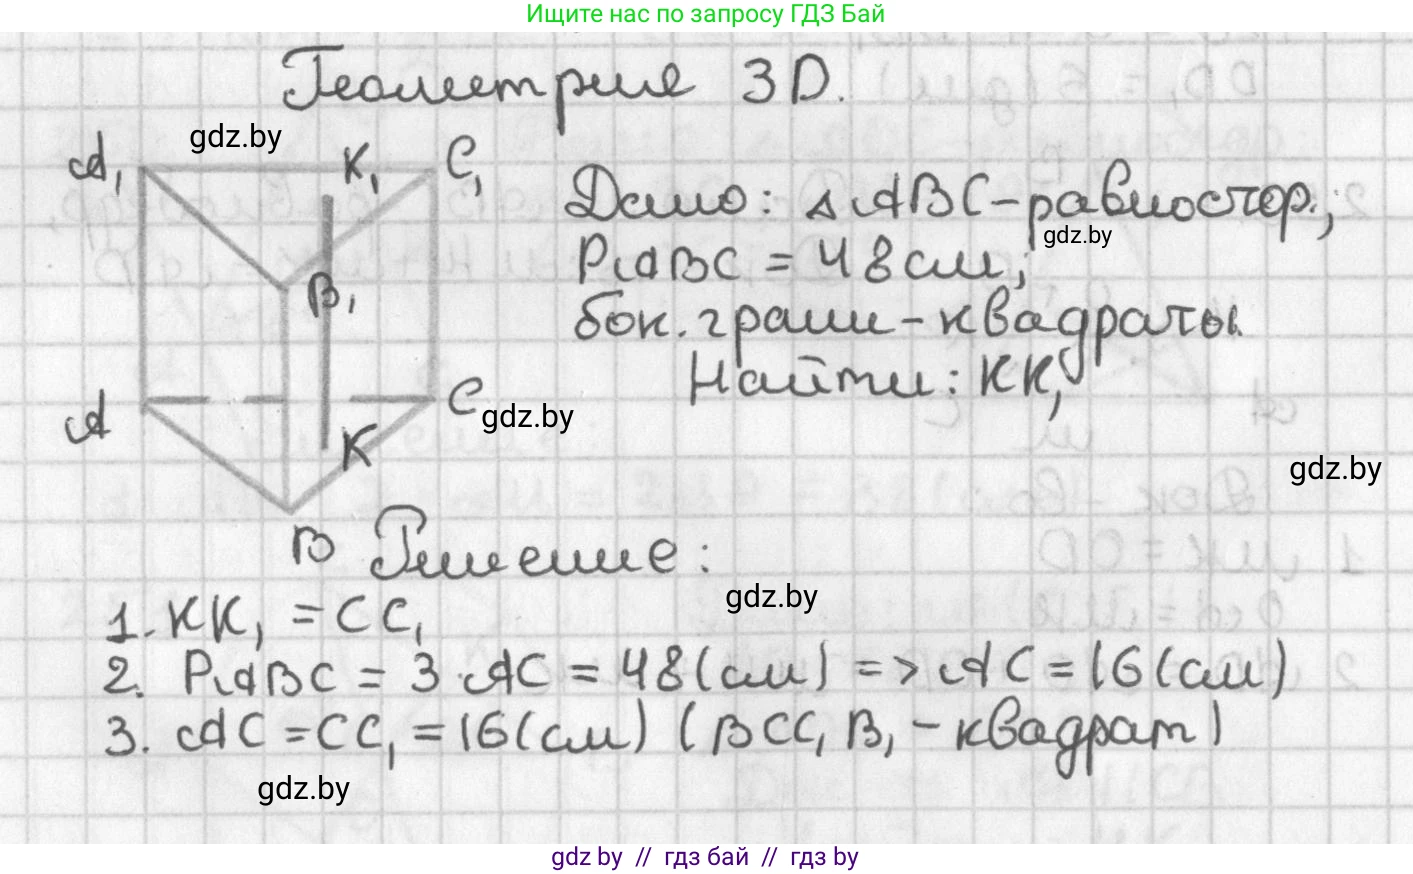 Ищите нас по запросу ГДЗ Бай
Геометрия 3D.
gdz.by
A₁ K₁ C₁
Дано: △ABC - равностор.;
gdz.by
PABC = 48 см;
B₁
бок. грани - квадраты.
Найти: KK₁
A C
gdz.by
K
gdz.by
B
Решение:
gdz.by
1. KK₁ = CC₁
2. PABC = 3·AC = 48 (см) => AC = 16 (см)
3. AC = CC₁ = 16 (см) (BCC₁B₁ - квадрат)
gdz.by
gdz by // гдз бай // гдз by